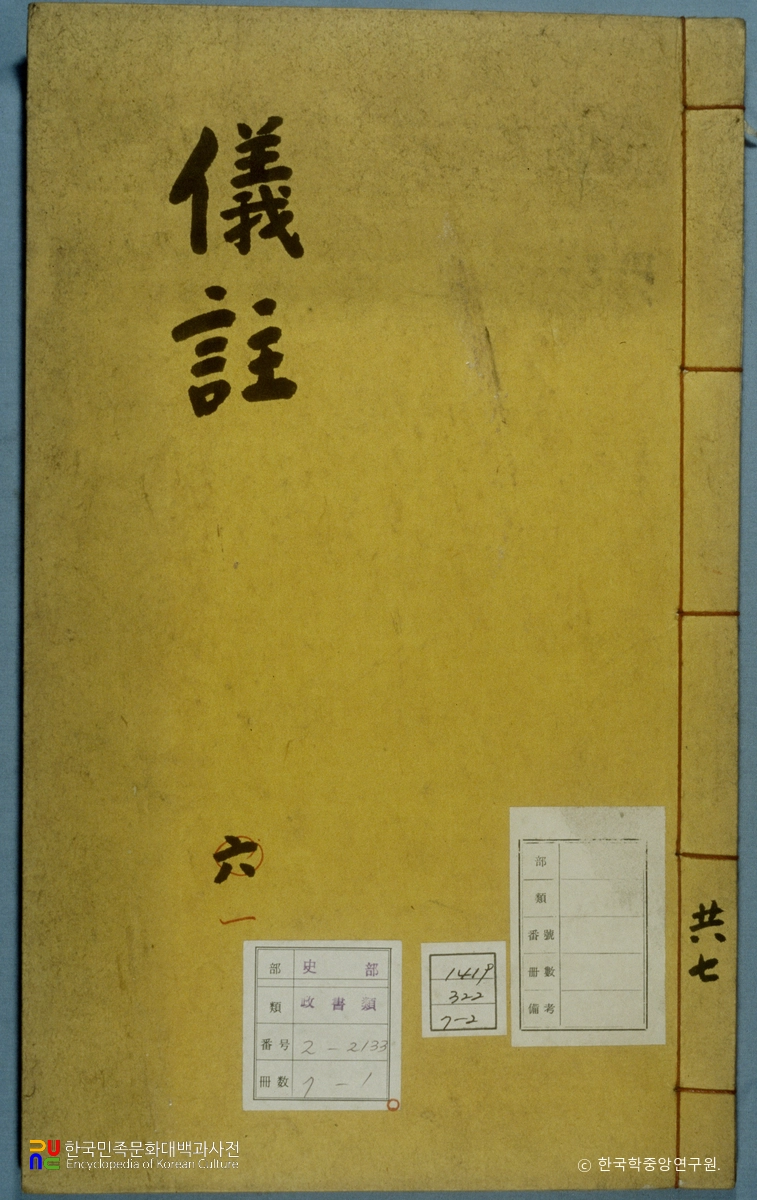 儀註
六
一
共七
部 史部
類 政書類
番号 2-2133
冊数 7-1
1419
322
7-2
部
類
番號
冊數
備考
한국민족문화대백과사전
Encyclopedia of Korean Culture
© 한국학중앙연구원.